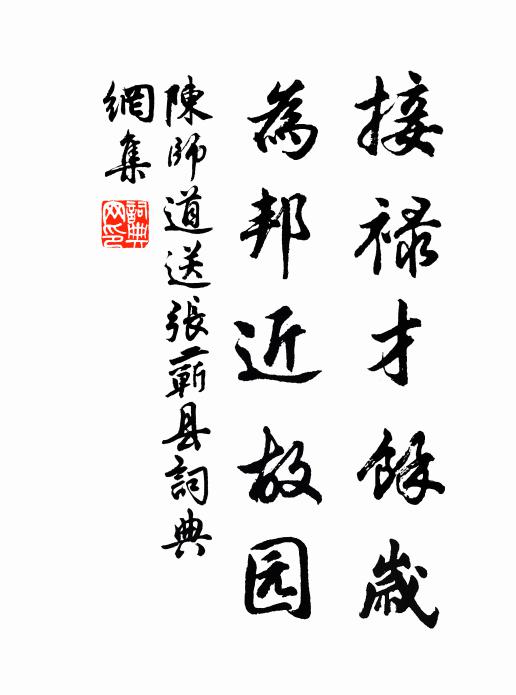 接禄才餘歲
為邦近故园
陳師道送張蘄县詞典
網集
詞典
网印